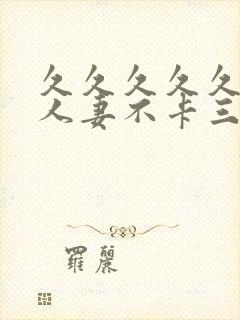 久久久久久
人妻不卡三
羅麗